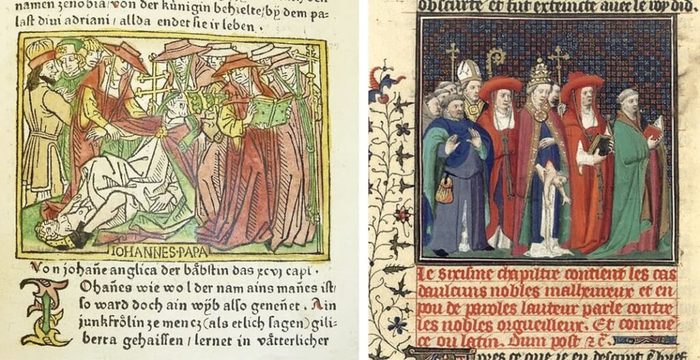 namen zenobia/ von der künigin behielte/ bÿ dem pa-
last diui adriani/ allda endet sie ir leben.
IOHANNES·PAPA
Von johañe anglica der bäbstin das xcvj capi.
IOhañes wie wol der nam ains manes ist/
so ward doch ain wÿb also genẽnet. Ain
junkfrölin ze mencz (als etlich sagen) gili-
berta gehaissen/ lernet in vätterlicher
obscurte et fut extincte auec le
Le sixisme chapiltre contient les cas
daulcuns nobles malheureux et en
pou de paroles lauteur parle contre
les nobles orgueilleux. Et comme
ce ou latin. Dum post